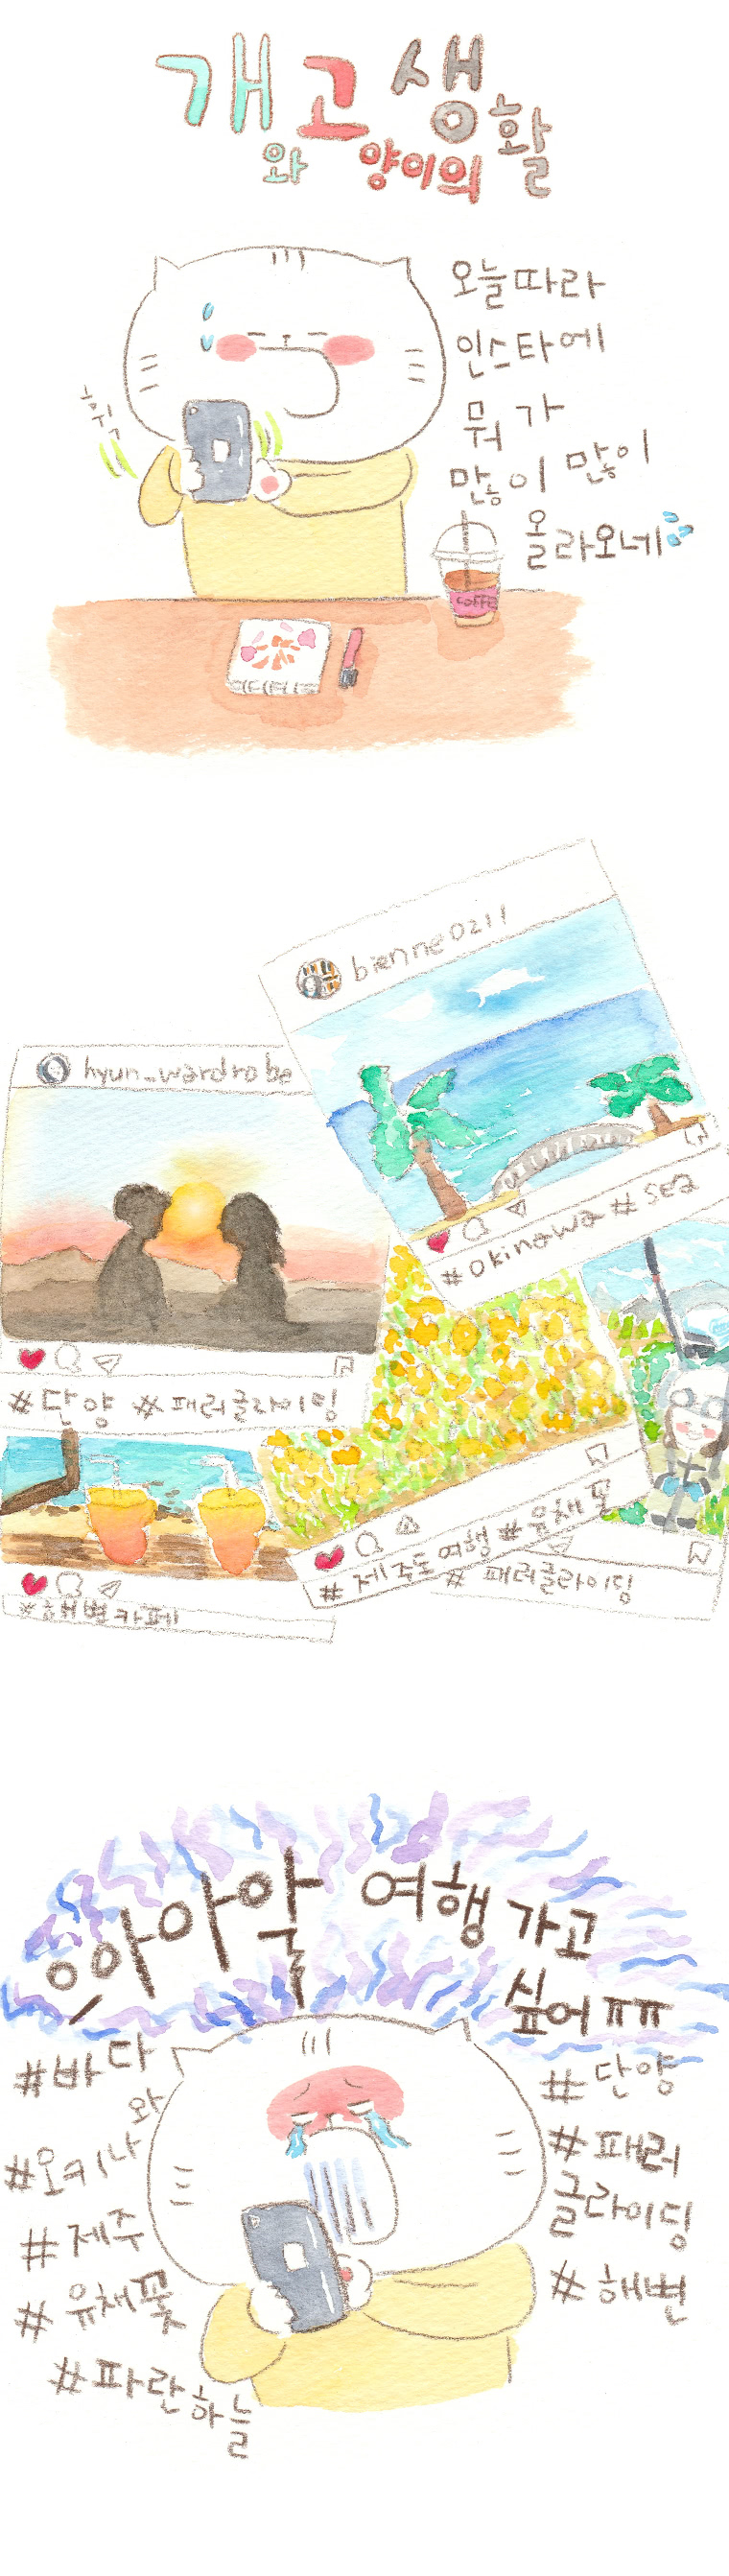 개고생활
와 양이의
오늘따라
인스타에
뭐가
많이 많이
올라오네
휘익
COFFEE
bienne0211
#okinawa #sea
hyun_wardrobe
#단양 #패러글라이딩
#제주도 여행 #유채꽃
#패러글라이딩
#해변카페
으아아악 여행 가고
싶어ㅠㅠ
#바다와
#오키나와
#제주
#유채꽃
#파란하늘
#단양
#패러
글라이딩
#해변